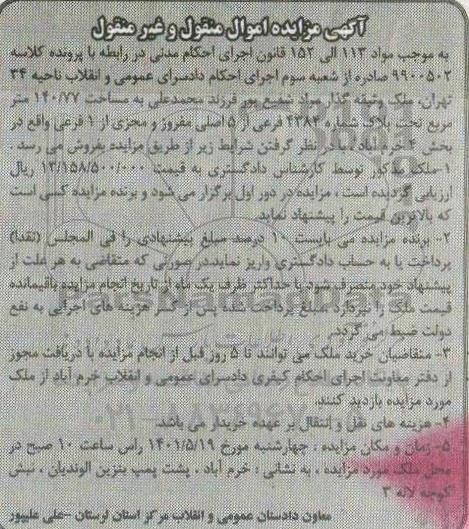 آگهی مزایده اموال منقول و غیر منقول
به موجب مواد ۱۱۳ الی ۱۵۲ قانون اجرای احکام مدنی در رابطه با پرونده کلاسه
۹۹۰۰۵۰۲ صادره از شعبه سوم اجرای احکام دادسرای عمومی و انقلاب ناحیه ۳۴
تهران، ملک وثیقه گذار مراد شفیع پور فرزند محمدعلی به مساحت ۱۴۰/۷۷ متر
مربع تحت پلاک شماره ۴۳۸۴ فرعی از ۵ اصلی مفروز و مجزی از ۱ فرعی واقع در
بخش ۴ خرم آباد ، با در نظر گرفتن شرایط زیر از طریق مزایده بفروش می رسد .
۱-ملک مذکور توسط کارشناس دادگستری به قیمت ۱۳/۱۵۸/۵۰۰/۰۰۰ ریال
ارزیابی گردیده است ، مزایده در دور اول برگزار می شود و برنده مزایده کسی است
که بالاترین قیمت را پیشنهاد نماید.
۲- برنده مزایده می بایست ۱۰ درصد مبلغ پیشنهادی را فی المجلس (نقدا)
پرداخت یا به حساب دادگستری واریز نماید.در صورتی که متقاضی به هر علت از
پیشنهاد خود منصرف شود یا حداکثر ظرف یک ماه از تاریخ انجام مزایده باقیمانده
قیمت ملک را نپردازد ، مبلغ پرداخت شده پس از کسر هزینه های اجرایی به نفع
دولت ضبط می گردد.
۳- متقاضیان خرید ملک می توانند تا ۵ روز قبل از انجام مزایده با دریافت مجوز
از دفتر معاونت اجرای احکام کیفری دادسرای عمومی و انقلاب خرم آباد از ملک
مورد مزایده بازدید کنند.
۴- هزینه های نقل و انتقال بر عهده خریدار می باشد.
۵- زمان و مکان مزایده ، چهارشنبه مورخ ۱۴۰۱/۵/۱۹ راس ساعت ۱۰ صبح در
محل ملک مورد مزایده ، به نشانی : خرم آباد ، پشت پمپ بنزین الوندیان ، نبش
کوچه لاله ۳
معاون دادستان عمومی و انقلاب مرکز استان لرستان -علی علیپور